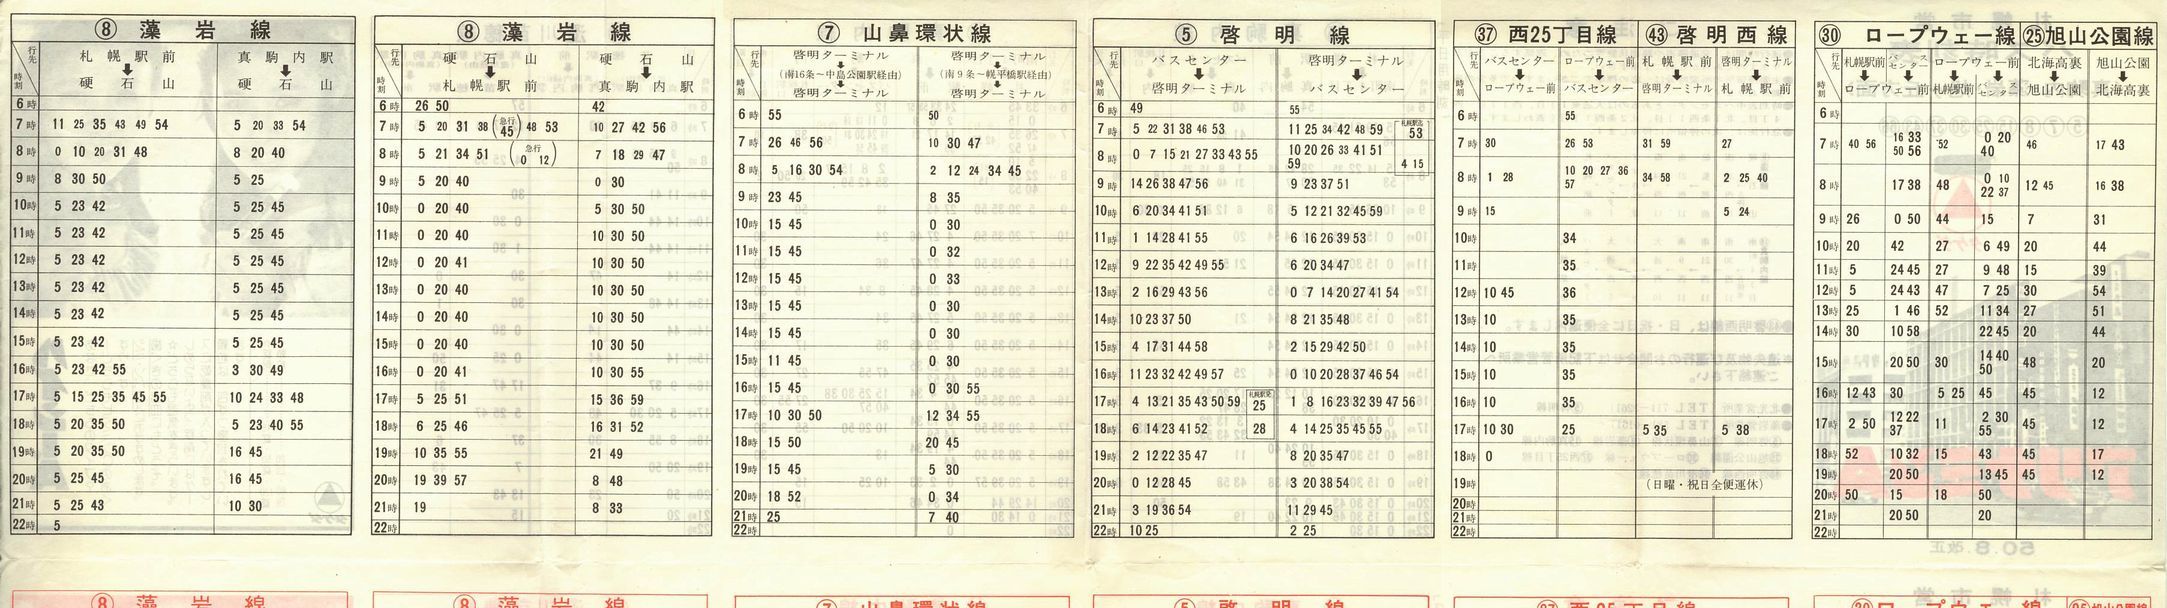 ⑧ 藻岩線
行先 時刻 札幌駅前 ➡ 硬石山 真駒内駅 ➡ 硬石山
6時
7時 11 25 35 43 49 54 5 20 33 54
8時 0 10 20 31 48 8 20 40
9時 8 30 50 5 25
10時 5 23 42 5 25 45
11時 5 23 42 5 25 45
12時 5 23 42 5 25 45
13時 5 23 42 5 25 45
14時 5 23 42 5 25 45
15時 5 23 42 5 25 45
16時 5 23 42 55 3 30 49
17時 5 15 25 35 45 55 10 24 33 48
18時 5 20 35 50 5 23 40 55
19時 5 20 35 50 16 45
20時 5 25 45 16 45
21時 5 25 43 10 30
22時 5
⑧ 藻岩線
行先 時刻 硬石山 ➡ 札幌駅前 硬石山 ➡ 真駒内駅
6時 26 50 42
7時 5 20 31 38 (急行 45) 48 53 10 27 42 56
8時 5 21 34 51 (急行 0 12) 7 18 29 47
9時 5 20 40 0 30
10時 0 20 40 5 30 50
11時 0 20 40 10 30 50
12時 0 20 41 10 30 50
13時 0 20 40 10 30 50
14時 0 20 40 10 30 50
15時 0 20 40 10 30 50
16時 0 20 41 10 30 55
17時 5 25 51 15 36 59
18時 6 25 46 16 31 52
19時 10 35 55 21 49
20時 19 39 57 8 48
21時 19 8 33
22時
⑦ 山鼻環状線
行先 時刻 啓明ターミナル ➡ (南16条~中島公園駅経由) 啓明ターミナル 啓明ターミナル ➡ (南9条~幌平橋駅経由) 啓明ターミナル
6時 55 50
7時 26 46 56 10 30 47
8時 5 16 30 54 2 12 24 34 45
9時 23 45 8 35
10時 15 45 0 30
11時 15 45 0 32
12時 15 45 0 33
13時 15 45 0 30
14時 15 45 0 30
15時 11 45 0 30
16時 15 45 0 30 55
17時 10 30 50 12 34 55
18時 15 50 20 45
19時 15 45 5 30
20時 18 52 0 34
21時 25 7 40
22時
⑤ 啓明線
行先 時刻 バスセンター ➡ 啓明ターミナル 啓明ターミナル ➡ バスセンター
6時 49 55
7時 5 22 31 38 46 53 11 25 34 42 48 59 53
8時 0 7 15 21 27 33 43 55 10 20 26 33 41 51 59 4 15
9時 14 26 38 47 56 9 23 37 51
10時 6 20 34 41 51 5 12 21 32 45 59
11時 1 14 28 41 55 6 16 26 39 53
12時 9 22 35 42 49 55 6 20 34 47
13時 2 16 29 43 56 0 7 14 20 27 41 54
14時 10 23 37 50 8 21 35 48
15時 4 17 31 44 58 2 15 29 42 50
16時 11 23 32 42 49 57 0 10 20 28 37 46 54
17時 4 13 21 35 43 50 59 札幌駅発 25 1 8 16 23 32 39 47 56
18時 6 14 23 41 52 28 4 14 25 35 45 55
19時 2 12 22 35 47 8 20 35 47
20時 0 12 28 45 3 20 38 54
21時 3 19 36 54 11 29 45
22時 10 25 2 25
㊲ 西25丁目線 ㊸ 啓明西線
行先 時刻 バスセンター ➡ ロープウェー前 ロープウェー前 ➡ バスセンター 札幌駅前 ➡ 啓明ターミナル 啓明ターミナル ➡ 札幌駅前
6時 55
7時 30 26 53 31 59 27
8時 1 28 10 20 27 36 57 34 58 2 25 40
9時 15 5 24
10時 34
11時 35
12時 10 45 36
13時 10 35
14時 10 35
15時 10 35
16時 10 35
17時 10 30 25 5 35 5 38
18時 0
19時 (日曜・祝日全便運休)
20時
21時
22時
㉚ ロープウェー線 ㉕旭山公園線
行先 時刻 札幌駅前 バスセンター ➡ ロープウェー前 ロープウェー前 ➡ 札幌駅前 バスセンター 北海高裏 ➡ 旭山公園 旭山公園 ➡ 北海高裏
6時
7時 40 56 16 33 50 56 52 0 20 40 46 17 43
8時 17 38 48 0 10 22 37 12 45 16 38
9時 26 0 50 44 15 7 31
10時 20 42 27 6 49 20 44
11時 5 24 45 27 9 48 15 39
12時 5 24 43 47 7 25 30 54
13時 25 1 46 52 11 34 27 51
14時 30 10 58 22 45 20 44
15時 20 50 30 14 40 50 48 20
16時 12 43 30 5 25 45 45 12
17時 2 50 12 22 37 11 2 30 55 45 12
18時 52 10 32 15 43 45 17
19時 20 50 13 45 45 12
20時 50 15 18 50
21時 20 50 20
22時
⑧ 藻岩線
⑧ 藻岩線
⑦ 山鼻環状線
⑤ 啓明線
㊲ 西25丁目線
㉚ ロープウェー線